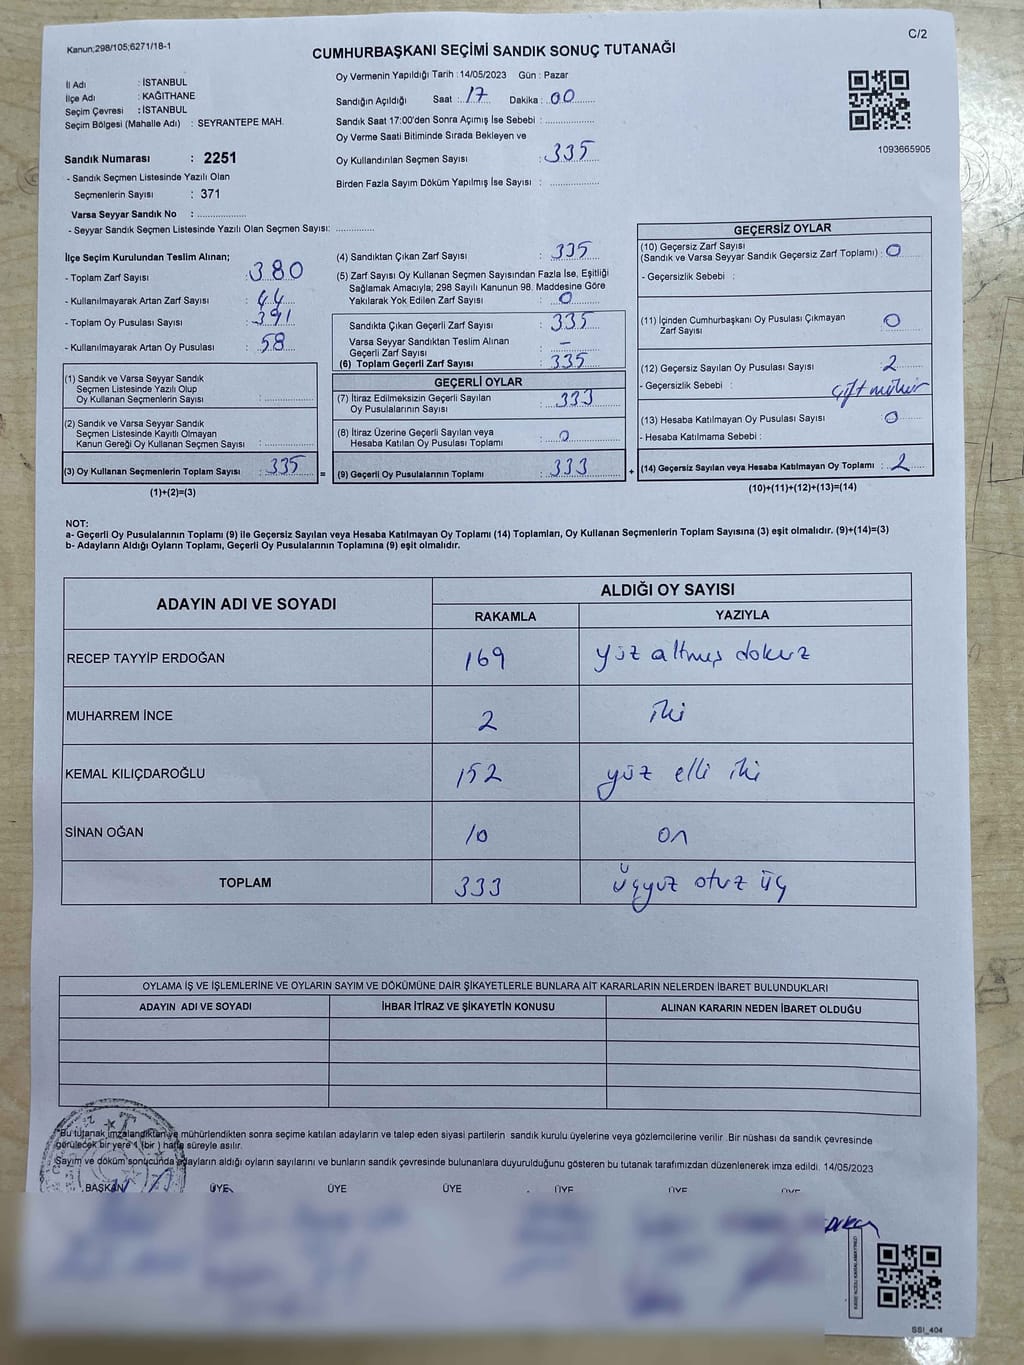 Kanun;298/105;6271/18-1
C/2
CUMHURBAŞKANI SEÇİMİ SANDIK SONUÇ TUTANAĞI
İl Adı : İSTANBUL
İlçe Adı : KAĞITHANE
Seçim Çevresi : İSTANBUL
Seçim Bölgesi (Mahalle Adı) : SEYRANTEPE MAH.
Oy Vermenin Yapıldığı Tarih :14/05/2023 Gün : Pazar
Sandığın Açıldığı Saat : 17 Dakika : 00
Sandık Saat 17:00'den Sonra Açımış İse Sebebi :
Oy Verme Saati Bitiminde Sırada Bekleyen ve
Oy Kullandırılan Seçmen Sayısı : 335
Birden Fazla Sayım Döküm Yapılmış İse Sayısı :
1093665905
Sandık Numarası : 2251
- Sandık Seçmen Listesinde Yazılı Olan
Seçmenlerin Sayısı : 371
Varsa Seyyar Sandık No :
- Seyyar Sandık Seçmen Listesinde Yazılı Olan Seçmen Sayısı:
İlçe Seçim Kurulundan Teslim Alınan;
- Toplam Zarf Sayısı : 380
- Kullanılmayarak Artan Zarf Sayısı : 44
- Toplam Oy Pusulası Sayısı : 391
- Kullanılmayarak Artan Oy Pusulası : 58
(1) Sandık ve Varsa Seyyar Sandık
Seçmen Listesinde Yazılı Olup
Oy Kullanan Seçmenlerin Sayısı :
(2) Sandık ve Varsa Seyyar Sandık
Seçmen Listesinde Kayıtlı Olmayan
Kanun Gereği Oy Kullanan Seçmen Sayısı :
(3) Oy Kullanan Seçmenlerin Toplam Sayısı : 335 =
(1)+(2)=(3)
(4) Sandıktan Çıkan Zarf Sayısı : 335
(5) Zarf Sayısı Oy Kullanan Seçmen Sayısından Fazla İse, Eşitliği
Sağlamak Amacıyla; 298 Sayılı Kanunun 98. Maddesine Göre
Yakılarak Yok Edilen Zarf Sayısı : 0
Sandıkta Çıkan Geçerli Zarf Sayısı : 335
Varsa Seyyar Sandıktan Teslim Alınan
Geçerli Zarf Sayısı : –
(6) Toplam Geçerli Zarf Sayısı : 335
GEÇERLİ OYLAR
(7) İtiraz Edilmeksizin Geçerli Sayılan
Oy Pusulalarının Sayısı : 333
(8) İtiraz Üzerine Geçerli Sayılan veya
Hesaba Katılan Oy Pusulası Toplamı : 0
(9) Geçerli Oy Pusulalarının Toplamı : 333 +
GEÇERSİZ OYLAR
(10) Geçersiz Zarf Sayısı
(Sandık ve Varsa Seyyar Sandık Geçersiz Zarf Toplamı) : 0
- Geçersizlik Sebebi :
(11) İçinden Cumhurbaşkanı Oy Pusulası Çıkmayan
Zarf Sayısı : 0
(12) Geçersiz Sayılan Oy Pusulası Sayısı : 2
- Geçersizlik Sebebi : çift mühür
(13) Hesaba Katılmayan Oy Pusulası Sayısı : 0
- Hesaba Katılmama Sebebi :
(14) Geçersiz Sayılan veya Hesaba Katılmayan Oy Toplamı : 2
(10)+(11)+(12)+(13)=(14)
NOT:
a- Geçerli Oy Pusulalarının Toplamı (9) ile Geçersiz Sayılan veya Hesaba Katılmayan Oy Toplamı (14) Toplamları, Oy Kullanan Seçmenlerin Toplam Sayısına (3) eşit olmalıdır. (9)+(14)=(3)
b- Adayların Aldığı Oyların Toplamı, Geçerli Oy Pusulalarının Toplamına (9) eşit olmalıdır.
ADAYIN ADI VE SOYADI
ALDIĞI OY SAYISI
RAKAMLA YAZIYLA
RECEP TAYYİP ERDOĞAN 169 yüz altmış dokuz
MUHARREM İNCE 2 iki
KEMAL KILIÇDAROĞLU 152 yüz elli iki
SİNAN OĞAN 10 on
TOPLAM 333 üçyüz otuz üç
OYLAMA İŞ VE İŞLEMLERİNE VE OYLARIN SAYIM VE DÖKÜMÜNE DAİR ŞİKAYETLERLE BUNLARA AİT KARARLARIN NELERDEN İBARET BULUNDUKLARI
ADAYIN ADI VE SOYADI İHBAR İTİRAZ VE ŞİKAYETİN KONUSU ALINAN KARARIN NEDEN İBARET OLDUĞU
"Bu tutanak imzalandıktan ve mühürlendikten sonra seçime katılan adayların ve talep eden siyasi partilerin sandık kurulu üyelerine veya gözlemcilerine verilir .Bir nüshası da sandık çevresinde
görülecek bir yere 1 (bir ) hafta süreyle asılır.
Sayım ve döküm sonucunda adayların aldığı oyların sayılarını ve bunların sandık çevresinde bulunanlara duyurulduğunu gösteren bu tutanak tarafımızdan düzenlenerek imza edildi. 14/05/2023
BAŞKAN ÜYE ÜYE ÜYE ÜYE ÜYE ÜYE
KARE KODU KARALAMAYINIZ!
SSI_404